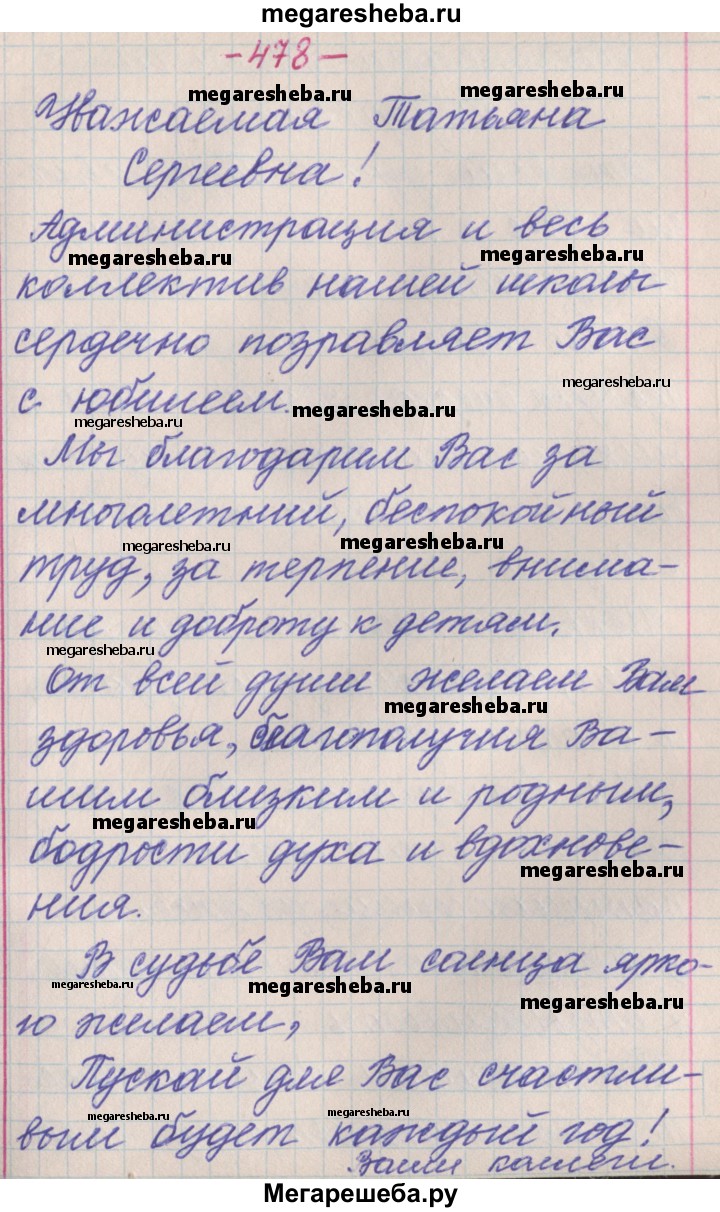 megaresheba.ru
-478-
megaresheba.ru
megaresheba.ru
Уважаемая Татьяна
Сергеевна!
Администрация и весь
megaresheba.ru
megaresheba.ru
коллектив нашей школы
сердечно поздравляет Вас
megaresheba.ru
с юбилеем.
megaresheba.ru
megaresheba.ru
Мы благодарим Вас за
многолетний, беспокойный
megaresheba.ru
megaresheba.ru
труд, за терпение, внима-
ние и доброту к детям.
megaresheba.ru
От всей души желаем Вам
megaresheba.ru
здоровья, благополучия Ва-
шим близким и родным,
megaresheba.ru
бодрости духа и вдохнове-
megaresheba.ru
ния.
В судьбе Вам солнца ярко-
megaresheba.ru
megaresheba.ru
megaresheba.ru
го желаем,
Пускай для Вас счастли-
megaresheba.ru
megaresheba.ru
megaresheba.ru
вым будет каждый год!
Ваши коллеги.
Мегарешеба.ру